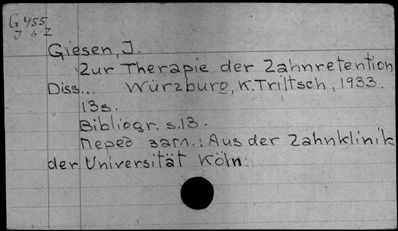 G 455
J 6 Z
Giesen, J.
Zur Therapie der Zahnretention
Diss... Würzburg, K. Triltsch, 1933.
13s.
Bibliogr. s. 13.
Перед загл.: Aus der Zahnklinik
der Universität Köln.